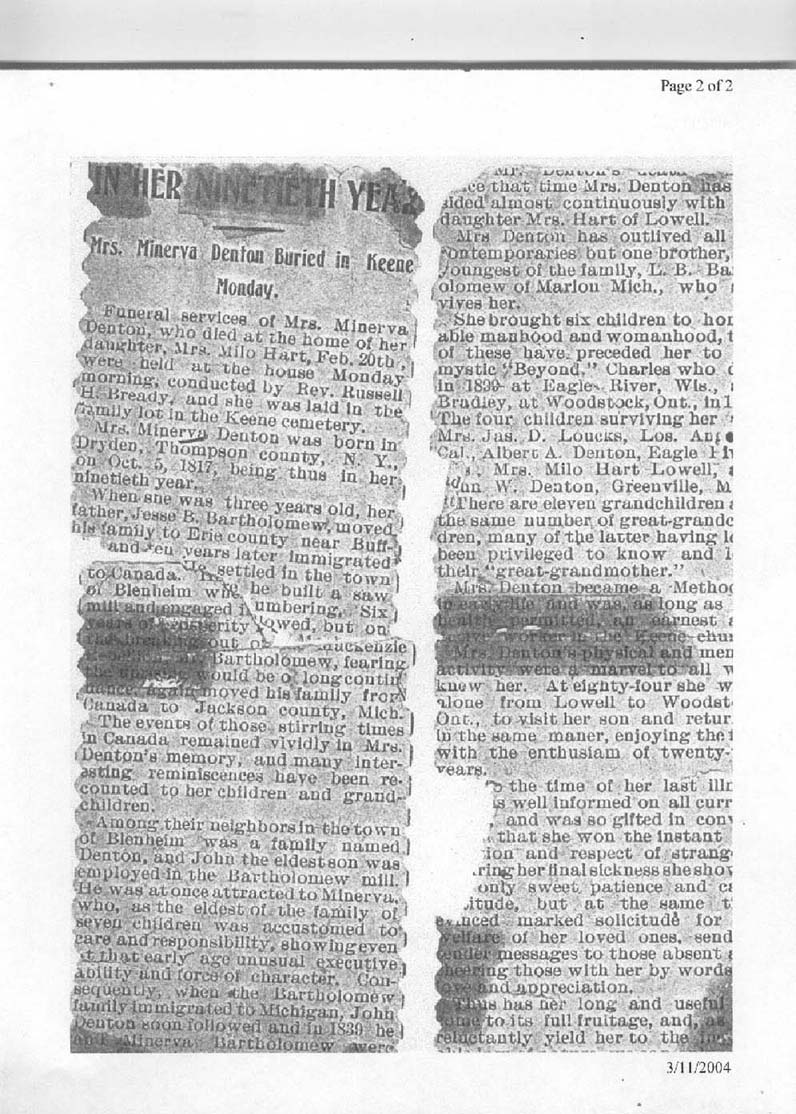 Page 2 of 2
IN HER NINETIETH YEAR
Mrs. Minerva Denton Buried in Keene
Monday.
Funeral services of Mrs. Minerva
Denton, who died at the home of her
daughter, Mrs. Milo Hart, Feb. 20th,
were held at the house Monday
morning, conducted by Rev. Russell
H. Bready, and she was laid in the
family lot in the Keene cemetery.
Mrs. Minerva Denton was born in
Dryden, Thompson county, N. Y.,
on Oct. 5, 1817, being thus in her
ninetieth year.
When she was three years old, her
father, Jesse B. Bartholomew, moved
his family to Erie county near Buff-
and ten years later immigrated
to Canada. He settled in the town
of Blenheim whe he built a saw
mill and engaged umbering. Six
years of prosperity owed, but on
the breaking out o Mackenzie
Bartholomew, fearing
the would be o longcontin
uance, again moved his family from
Canada to Jackson county, Mich.
The events of those stirring times
in Canada remained vividly in Mrs.
Denton's memory, and many inter-
esting reminiscences have been re-
counted to her children and grand-
children.
Among their neighbors in the town
of Blenheim was a family named
Denton, and John the eldest son was
employed in the Bartholomew mill.
He was at once attracted to Minerva,
who, as the eldest of the family of
seven children was accustomed to
care and responsibility, showing even
at that early age unusual executive
ability and force of character. Con-
sequently, when the Bartholomew
family immigrated to Michigan, John
Denton soon followed and in 1839 he
and Minerva Bartholomew were
Mr. Denton's death
ce that time Mrs. Denton has
ided almost continuously with
daughter Mrs. Hart of Lowell.
Mrs Denton has outlived all
contemporaries but one brother,
youngest of the family, L. B. Ba
olomew of Marion Mich., who
vives her.
She brought six children to hor
able manhood and womanhood, t
of these have preceded her to
mystic "Beyond." Charles who d
in 1839 at Eagle River, Wis.,
Bradley, at Woodstock, Ont., in 1
The four children surviving her
Mrs. Jas. D. Loucks, Los. Ang
Cal., Albert A. Denton, Eagle Riv
s, Mrs. Milo Hart Lowell,
W. Denton, Greenville, M
There are eleven grandchildren a
the same number of great-grandc
dren, many of the latter having l
been privileged to know and l
their "great-grandmother."
Mrs. Denton became a Method
in early life and was, as long as
health permitted, an earnest a
active worker in the Keene chur
Mrs. Denton's physical and men
activity were a marvel to all w
knew her. At eighty-four she w
alone from Lowell to Woodst
Ont., to visit her son and retur
in the same maner, enjoying the t
with the enthusiam of twenty-
years.
o the time of her last illn
s well informed on all curr
and was so gifted in conv
that she won the instant
ion and respect of strang
ring her final sickness she shov
only sweet patience and c
itude, but at the same t
evinced marked solicitude for
welfare of her loved ones, send
tender messages to those absent a
cheering those with her by words
love and appreciation.
Thus has her long and useful
come to its full fruitage, and, as
reluctantly yield her to the
3/11/2004